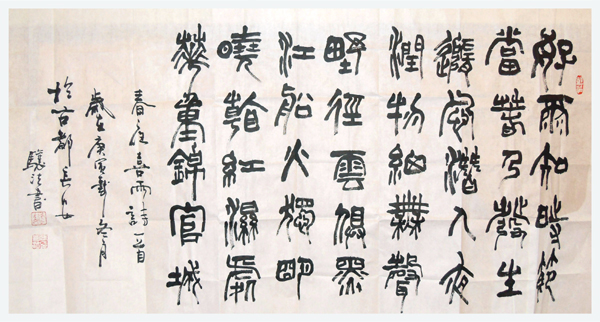 好雨知時節
當春乃發生
隨風潛入夜
潤物細無聲
野徑雲俱黑
江船火獨明
曉看紅濕處
花重錦官城
春夜喜雨詩一首
歲在庚寅歲冬月
於古都長安
書